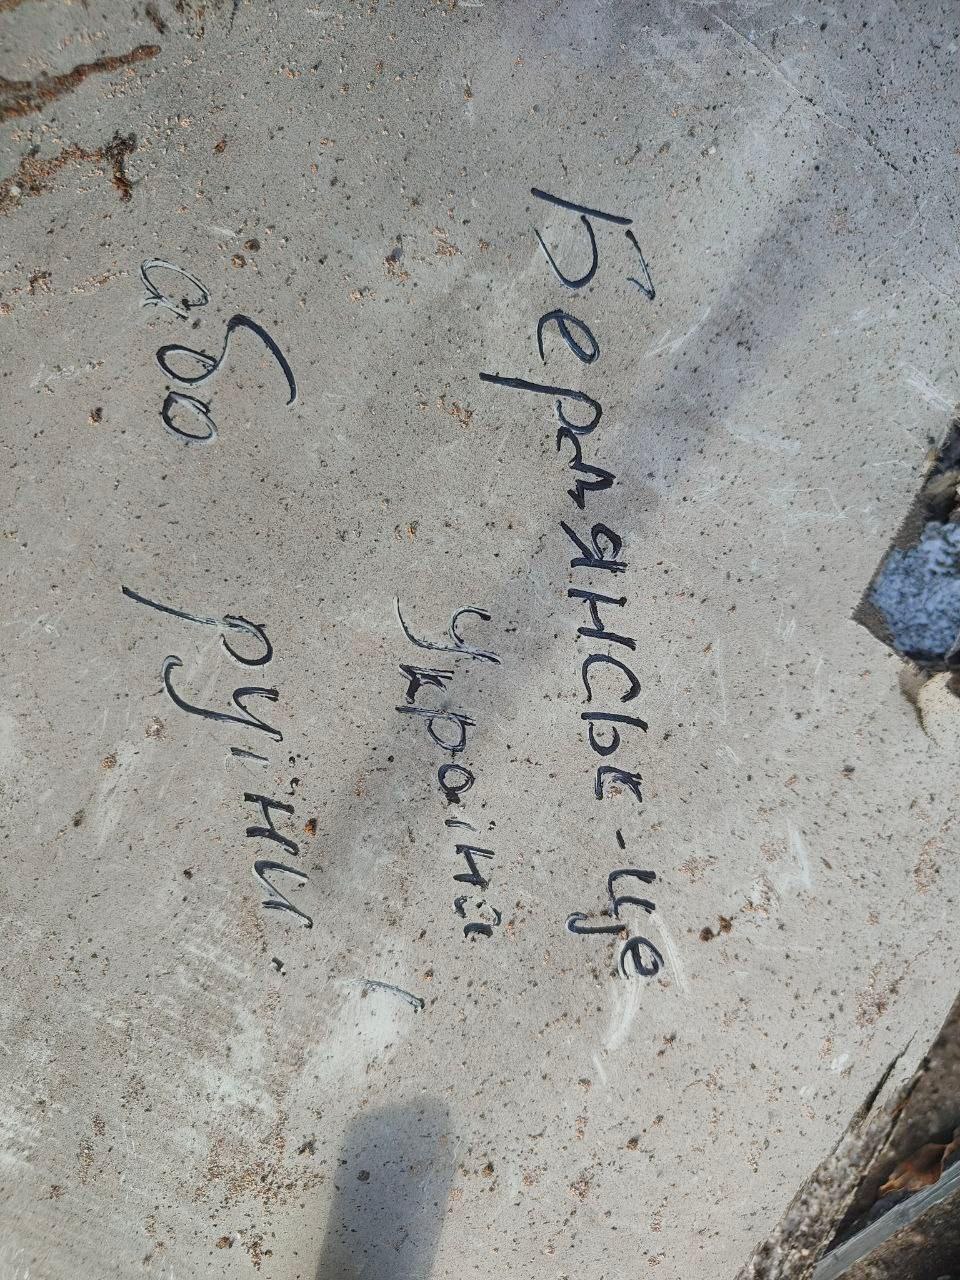 Бердянськ - це
Україна,
або руїни.